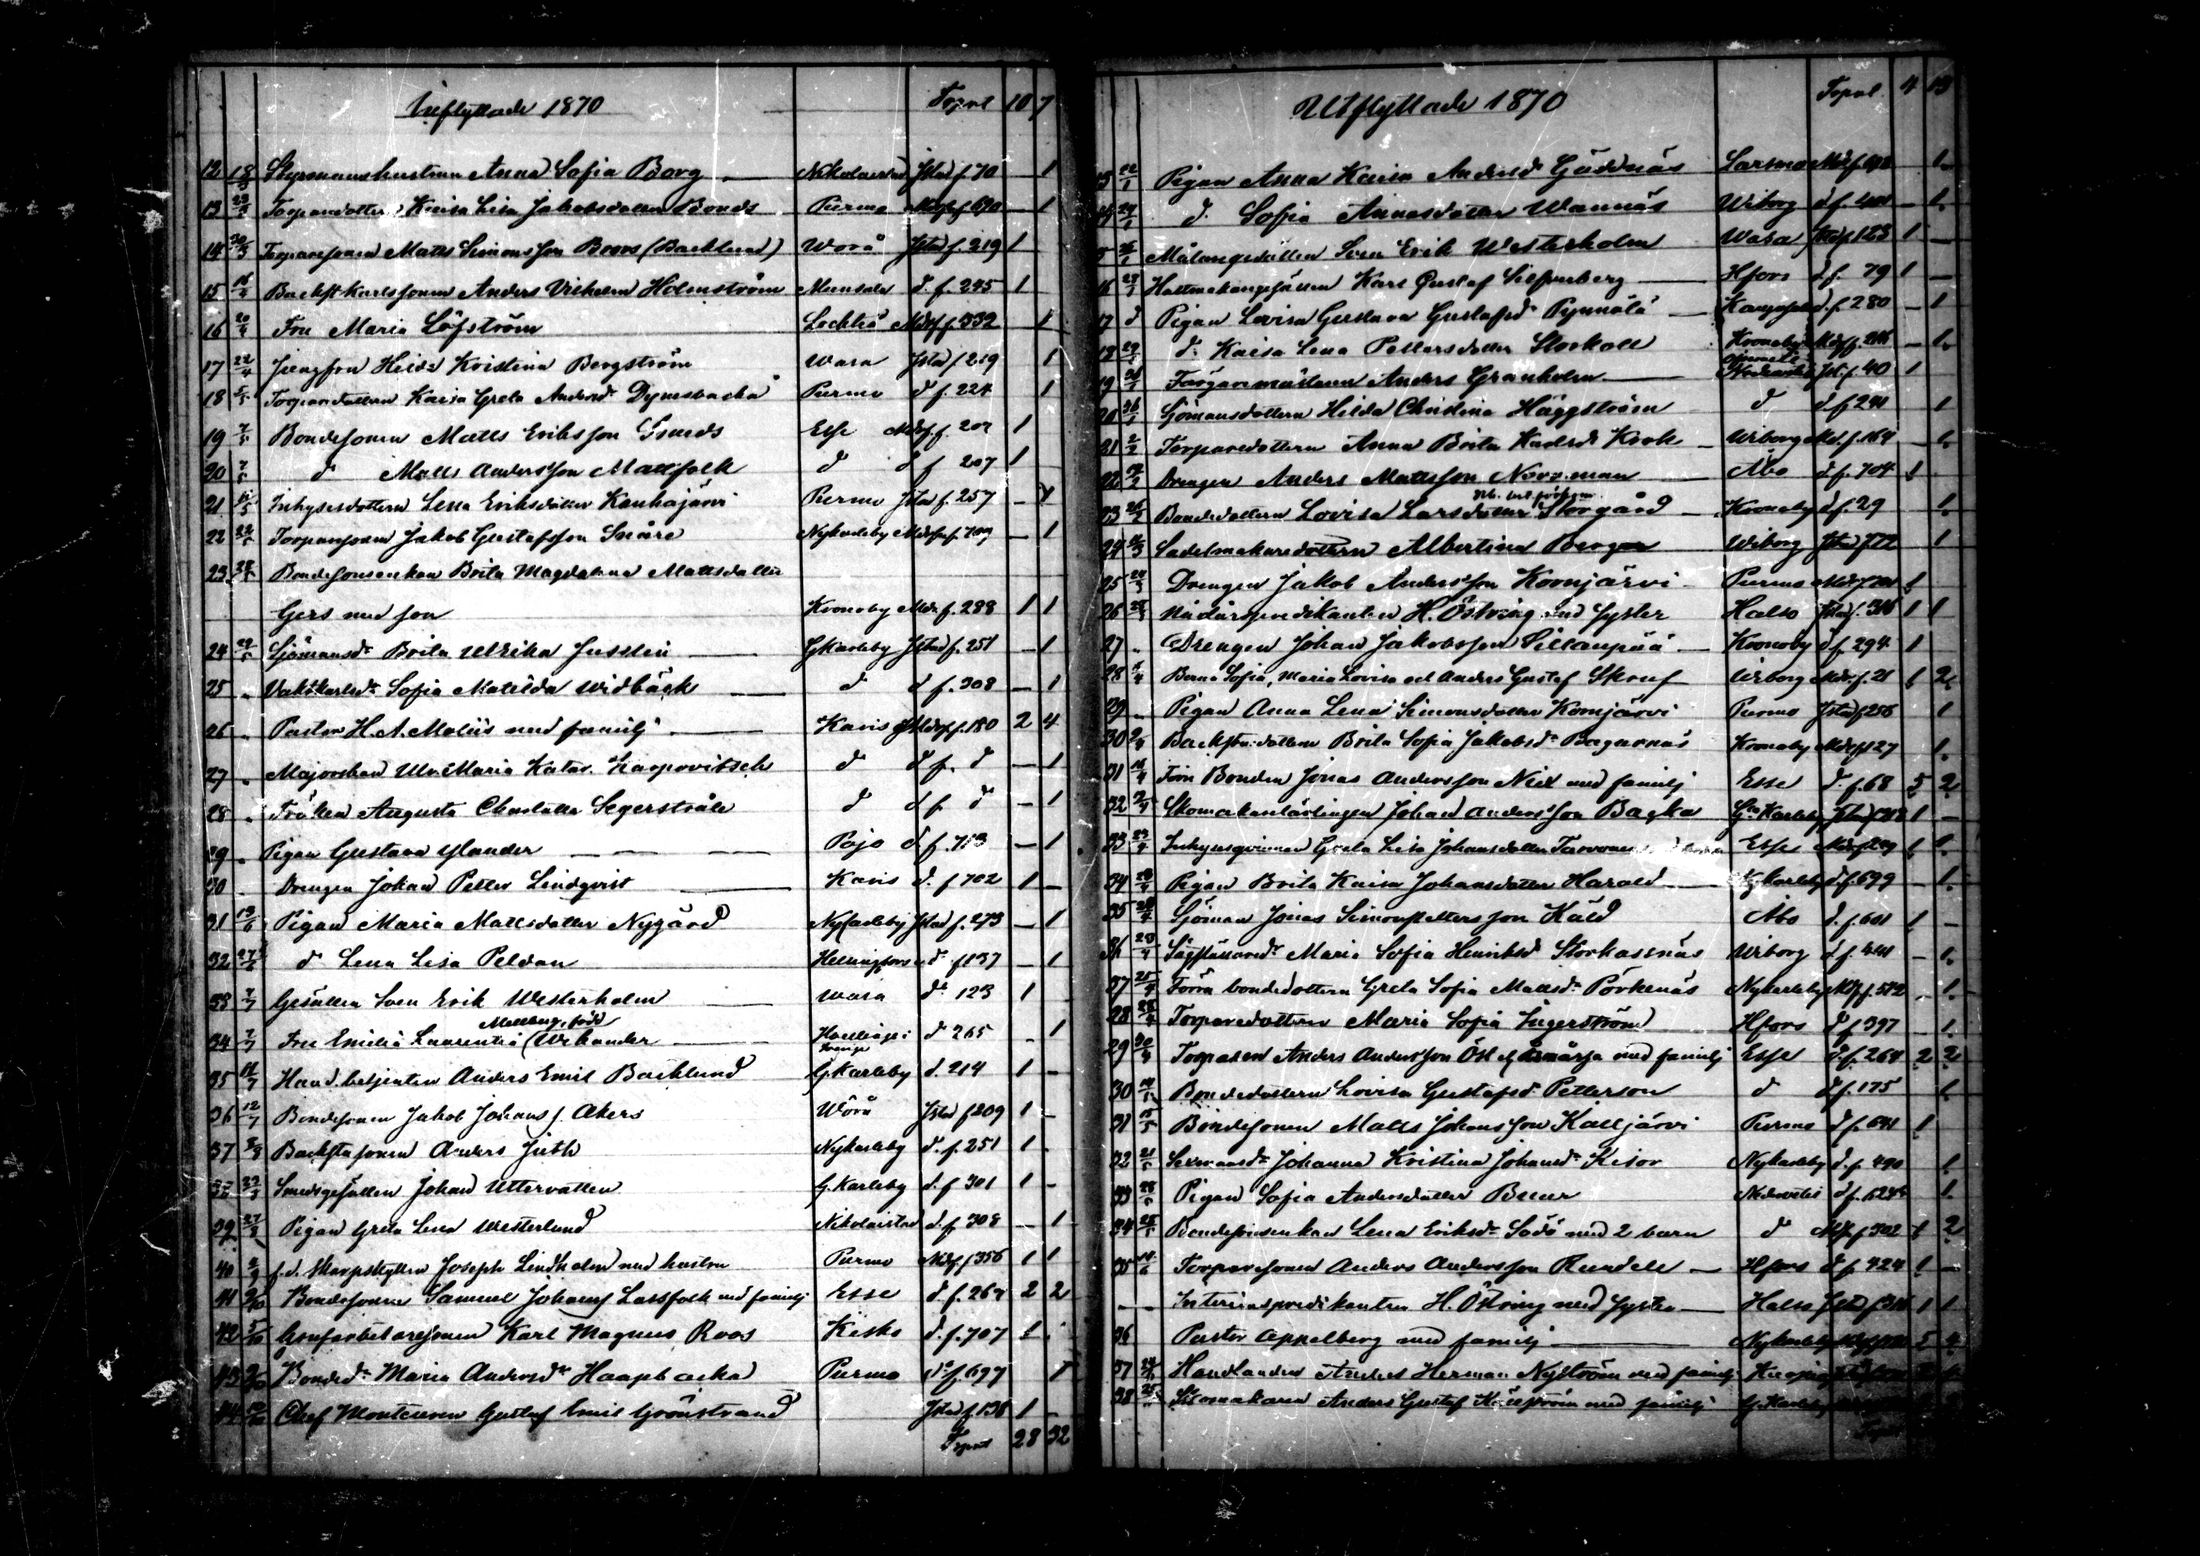 Inflyttade 1870 Transp. 10 7
12 18/3 Styrmanshustrun Anna Sofia Borg Nikolaistad Jstad f. 70 1
13 29/3 Torparedottern Kaisa Lisa Jakobsdotter Bonds Purmo Mdsf f. 690 – 1
14 30/3 Torparesonen Matts Simonsson Boors (Backlund) Wörå Jstad f. 219 1
15 16/4 Backst. Karlssonen Anders Vilhelm Holmström Munsala d. f. 245 1
16 20/4 Fru Maria Löfström Lochteå Mdsf f. 332 1
17 22/4 Jungfru Heidi Kristina Bergström Wasa Jstad f. 219 1
18 5/5 Torparedottern Kaisa Greta Andersdr Dynesbacka Purmo d f. 224 1
19 7/5 Bondesonen Matts Eriksson Smeds Esse Mdsf f. 207 1
20 7/5 d Matts Andersson Mattfolk d d f 207 1
21 Inhysesdottern Lena Eriksdotter Kauhajärvi Purmo Jstad f. 257 – 1
22 22/5 Torparesonen Jakob Gustafsson Snåre Nykarleby Mdsf f. 709 – 1
23 Bondesonsenkan Brita Magdalena Mattsdotter
Gers med son Kronoby Mdsf. 288 1 1
24 29/5 Sjömansdr Brita Ulrika Jusslin GKarleby Jstad f. 251 – 1
25 " Vaktkarlsdr Sofia Matilda Widbäck d d f. 308 – 1
26 " Pastor H. A. Malins med familj Karis Mdsf f. 180 2 4
27 " Majorskan Ulr. Maria Katar. Karpovitsch d d f. d – 1
28 " Fröken Augusta Charlotta Segerstråle d d f. d – 1
29 " Pigan Gustava Ylander Pojo d f. 713 – 1
30 Drengen Johan Petter Lindqvist Karis d. f 702 1 –
31 13/6 Pigan Maria Mattsdotter Nygård Nykarleby Jstad f. 273 – 1
32 27/6 d Lena Lisa Peldan Helsingfors d f 137 – 1
33 7/7 Gesällen Sven Erik Westerholm Wasa d 123 1
34 7/7 Fru Emilia Laurentia (Wikander Mellberg, född Sverige d 265 – 1
35 11/7 Hand. betjenten Anders Emil Backlund G.Karleby d. 214 1 –
36 12/7 Bondesonen Jakob Johans f. Akers Wörå Jstad f 209 1 –
37 8/8 Backstusonen Anders Juth Nykarleby d. f. 251 1
38 22/8 Smedsgesällen Johan Uttervatten G.Karleby d. f 301 1 –
39 27/8 Pigan Greta Lena Westerlund Nikolaistad d. f 308 – 1
40 2/9 f.d. Skarpskytten Joseph Lindholm med hustru Purmo Mdsf. f 356 1 1
41 Bondesonen Samuel Johansf Lassfolk med familj Esse d. f. 264 2 2
42 5/10 Grufarbetaresonen Karl Magnus Roos Kisko d. f. 707 1
43 Bondedr Maria Andersdr Haapbacka Purmo d f 697 1
44 Chef Monteuren Gustaf Emil Grönstrand Jstad f 138 1 –
Transp 28 32
Utflyttade 1870 Transp. 4 13
13 22/1 Pigan Anna Kaisa Andersdr Gäddnäs Larsmo Mdsf. 1
d. Sofia Annasdotter Wannäs Wiborg d f. – 1
Målaregesällen Sven Erik Westerholm Wasa Jstad 123 1 –
16 Hattmakaregesällen Karl Gustaf Silfverberg Hfors d. f. 79 1 –
17 d Pigan Lovisa Gustava Gustafsdr Pynnälä d. f. 280 – 1
18 29/1 d. Kaisa Lena Pettersdotter Storkåll Kronoby Mdsf f. – 1
19 Färgaremästaren Anders Granholm Jst. f. 40 1
20 Sjömansdottern Hilda Christina Häggström d d f 241 1
21 2/2 Torparedottern Anna Brita Karlsdr Krok Wiborg Md. f. 164 – 1
22 Drengen Anders Mattsson Norrman Åbo d f. 704 1
23 Bondedottern Lovisa Larsdotter Storgård Kronoby d f. 29 1
24 Sadelmakaredottern Albertina Berger Wiborg Jstad f 72 1
25 Drengen Jakob Andersson Kornjärvi Purmo 1
26 Nådårspredikanten H. Östring med syster Halso Jstad f. 316 1 1
27 " Drengen Johan Jakobsson Sillanpää Kronoby d f. 294 1
28 Barna Sofia, Maria Lovisa och Anders Gustaf Skruf Wiborg Mdsf. f. 21 1 2
29 Pigan Anna Lena Simonsdotter Kornjärvi Purmo Jstad f 256 1
30 Backstudottern Brita Sofia Jakobsdr Bagarnäs Kronoby Mdsf f 127 1
31 Förre Bonden Jonas Andersson Nix med familj Esse d. f. 68 5 2
32 Skomakarelärlingen Johan Andersson Backa Gla Karleby Jstad 1 –
33 Inhysesqvinnan Greta Lisa Johansdotter Esse 1 1
34 Pigan Brita Kaisa Johansdotter Harald Nykarleby d f. 699 – 1
35 Sjöman Jonas Simon Pettersson Käld Åbo d. f. 601 1 –
36 Maria Sofia Henriksdr Storkasnäs Wiborg d f. 441 – 1
37 Förra bondedottern Greta Sofia Mattsdr Pörkenäs Nykarleby Mdsf f. 512 – 1
28 Torparedottern Maria Sofia Sugerström Hfors d f 397 – 1
29 30/4 Torparen Anders Andersson Öst med familj Esse d. f. 264 2 2
30 Bondedottern Lovisa Gustafsdr Petterson d d f. 175 1
31 Bondesonen Matts Johansson Kalljärvi Purmo d f. 641 1
32 Johanna Kristina Johansdr Keisor Nykarleby d. f. 490 1
33 Pigan Sofia Andersdotter Buur Nedervetil 1
34 Bondesonsenkan Lena Eriksdr Södö med 2 barn d Mdsf f 302 1 2
35 Torparesonen Anders Andersson Rundell Hfors d f. 424 1 –
– – Interimspredikanten H. Östring med syster Halso 1 1
36 Pastor Appelberg med familj Nykarleby 5 4
37 Handlanden Anders Herman Nyström med familj
38 Skomakaren Anders Gustaf Källström med familj G. Karleby
Transp